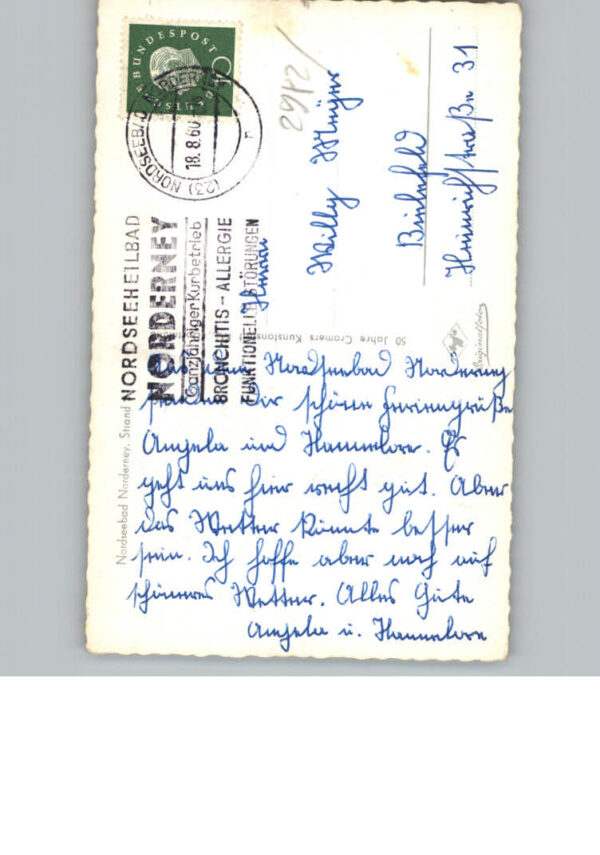 BUNDESPOST
(23) NORDSEEBAD NORDERNEY
18.8.60
NORDSEEHEILBAD
NORDERNEY
Ganzjähriger Kurbetrieb
BRONCHITIS - ALLERGIE
FUNKTIONELLE STÖRUNGEN
2982
Herrn
Willy Meyer
Bielefeld
Heinrichstraße 31
50 Jahre Cramers Kunstanst
Originalfoto
Nordseebad Norderney, Strand
Nordseebad Norderney
Dir schöne Feriengrüße
Angela und Hannelore. Es
geht uns hier recht gut. Aber
das Wetter könnte besser
sein. Ich hoffe aber noch auf
schöneres Wetter. Alles Gute
Angela u. Hannelore